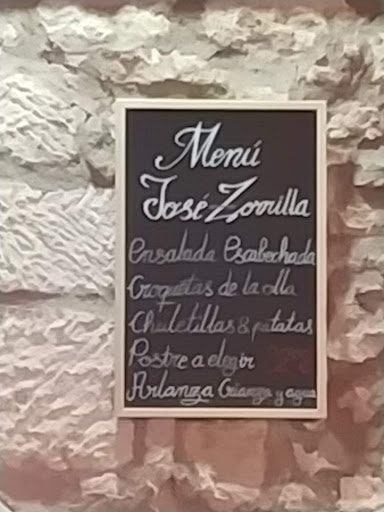 Menú
José Zorrilla
Ensalada Escabechada
Croquetas de la olla
Chuletillas & patatas
Postre a elegir
Arlanza Crianza y agua